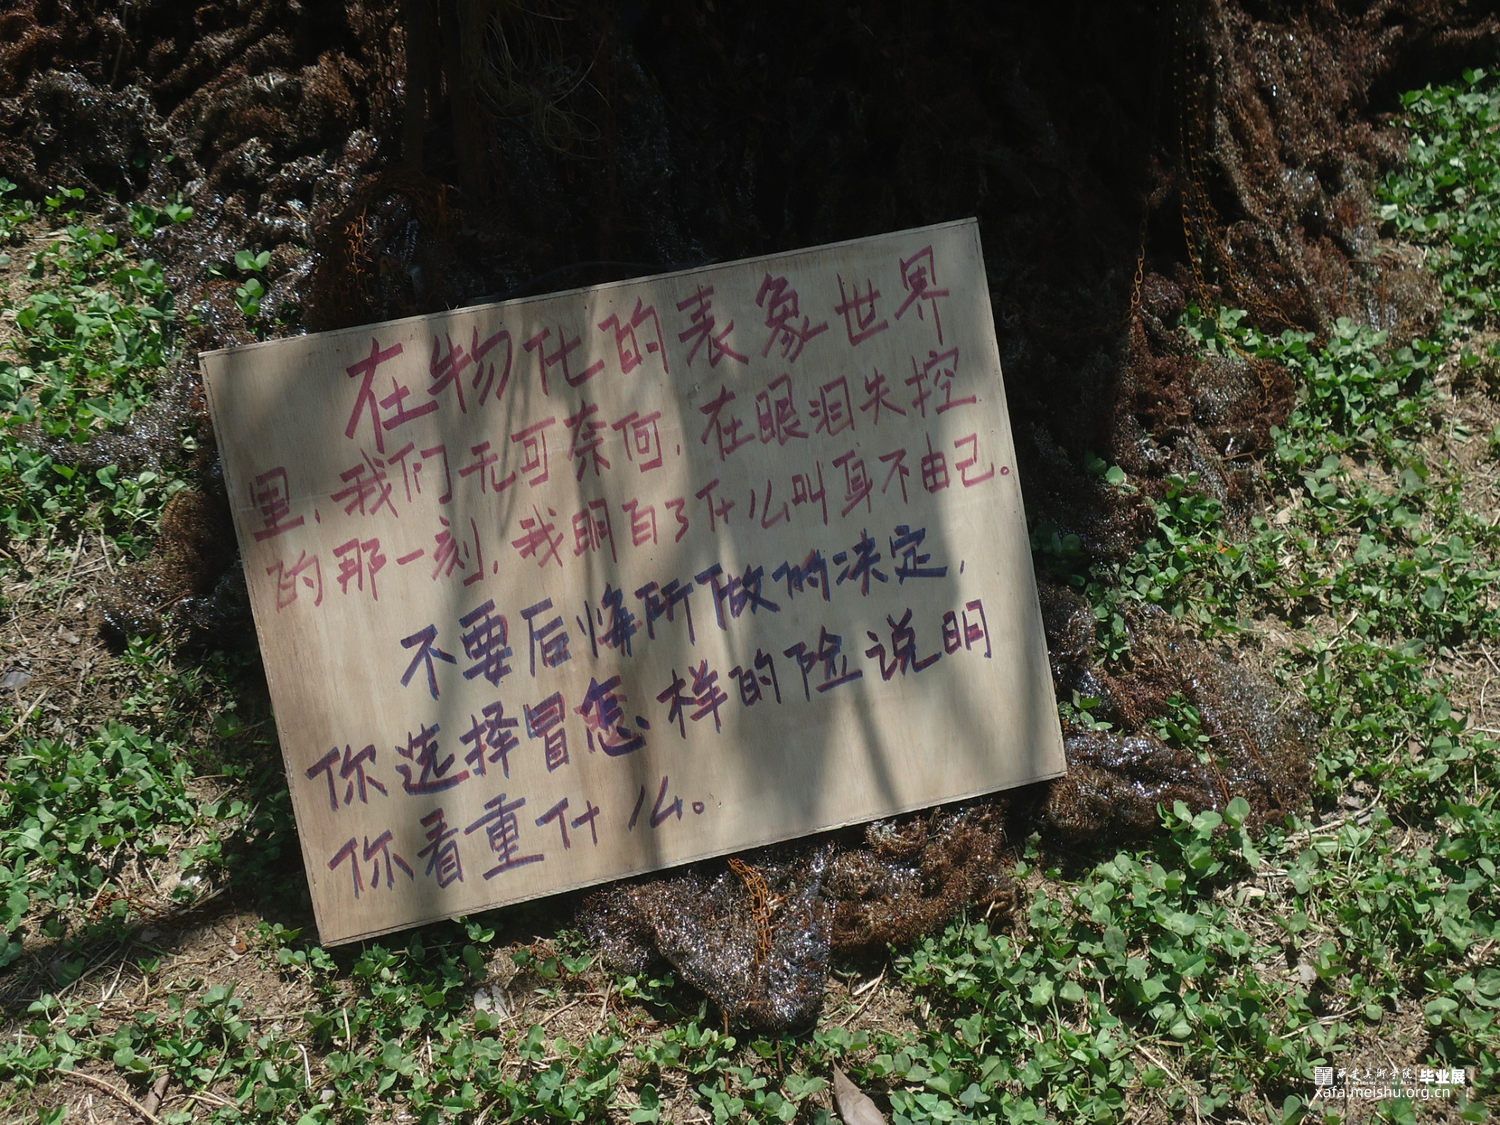 在物化的表象世界
里,我们无可奈何,在眼泪失控
的那一刻,我明白了什么叫身不由己。
不要后悔所做的决定,
你选择冒怎样的险说明
你看重什么。
西安美术学院 毕业展
xafa.meishu.org.cn